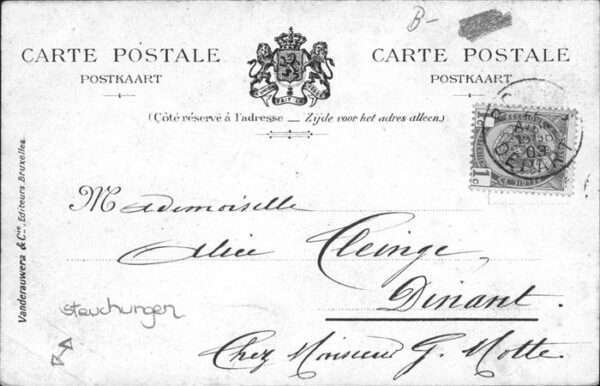 B-
CARTE POSTALE
POSTKAART
CARTE POSTALE
POSTKAART
(Côté réservé à l'adresse — Zijde voor het adres alleen.)
DEPART
09
1c
Mademoiselle
Alice Cleinge
Dinant.
Chez Monsieur G. Motte
stauchungen
Vanderauwera & Cie, Editeurs, Bruxelles.